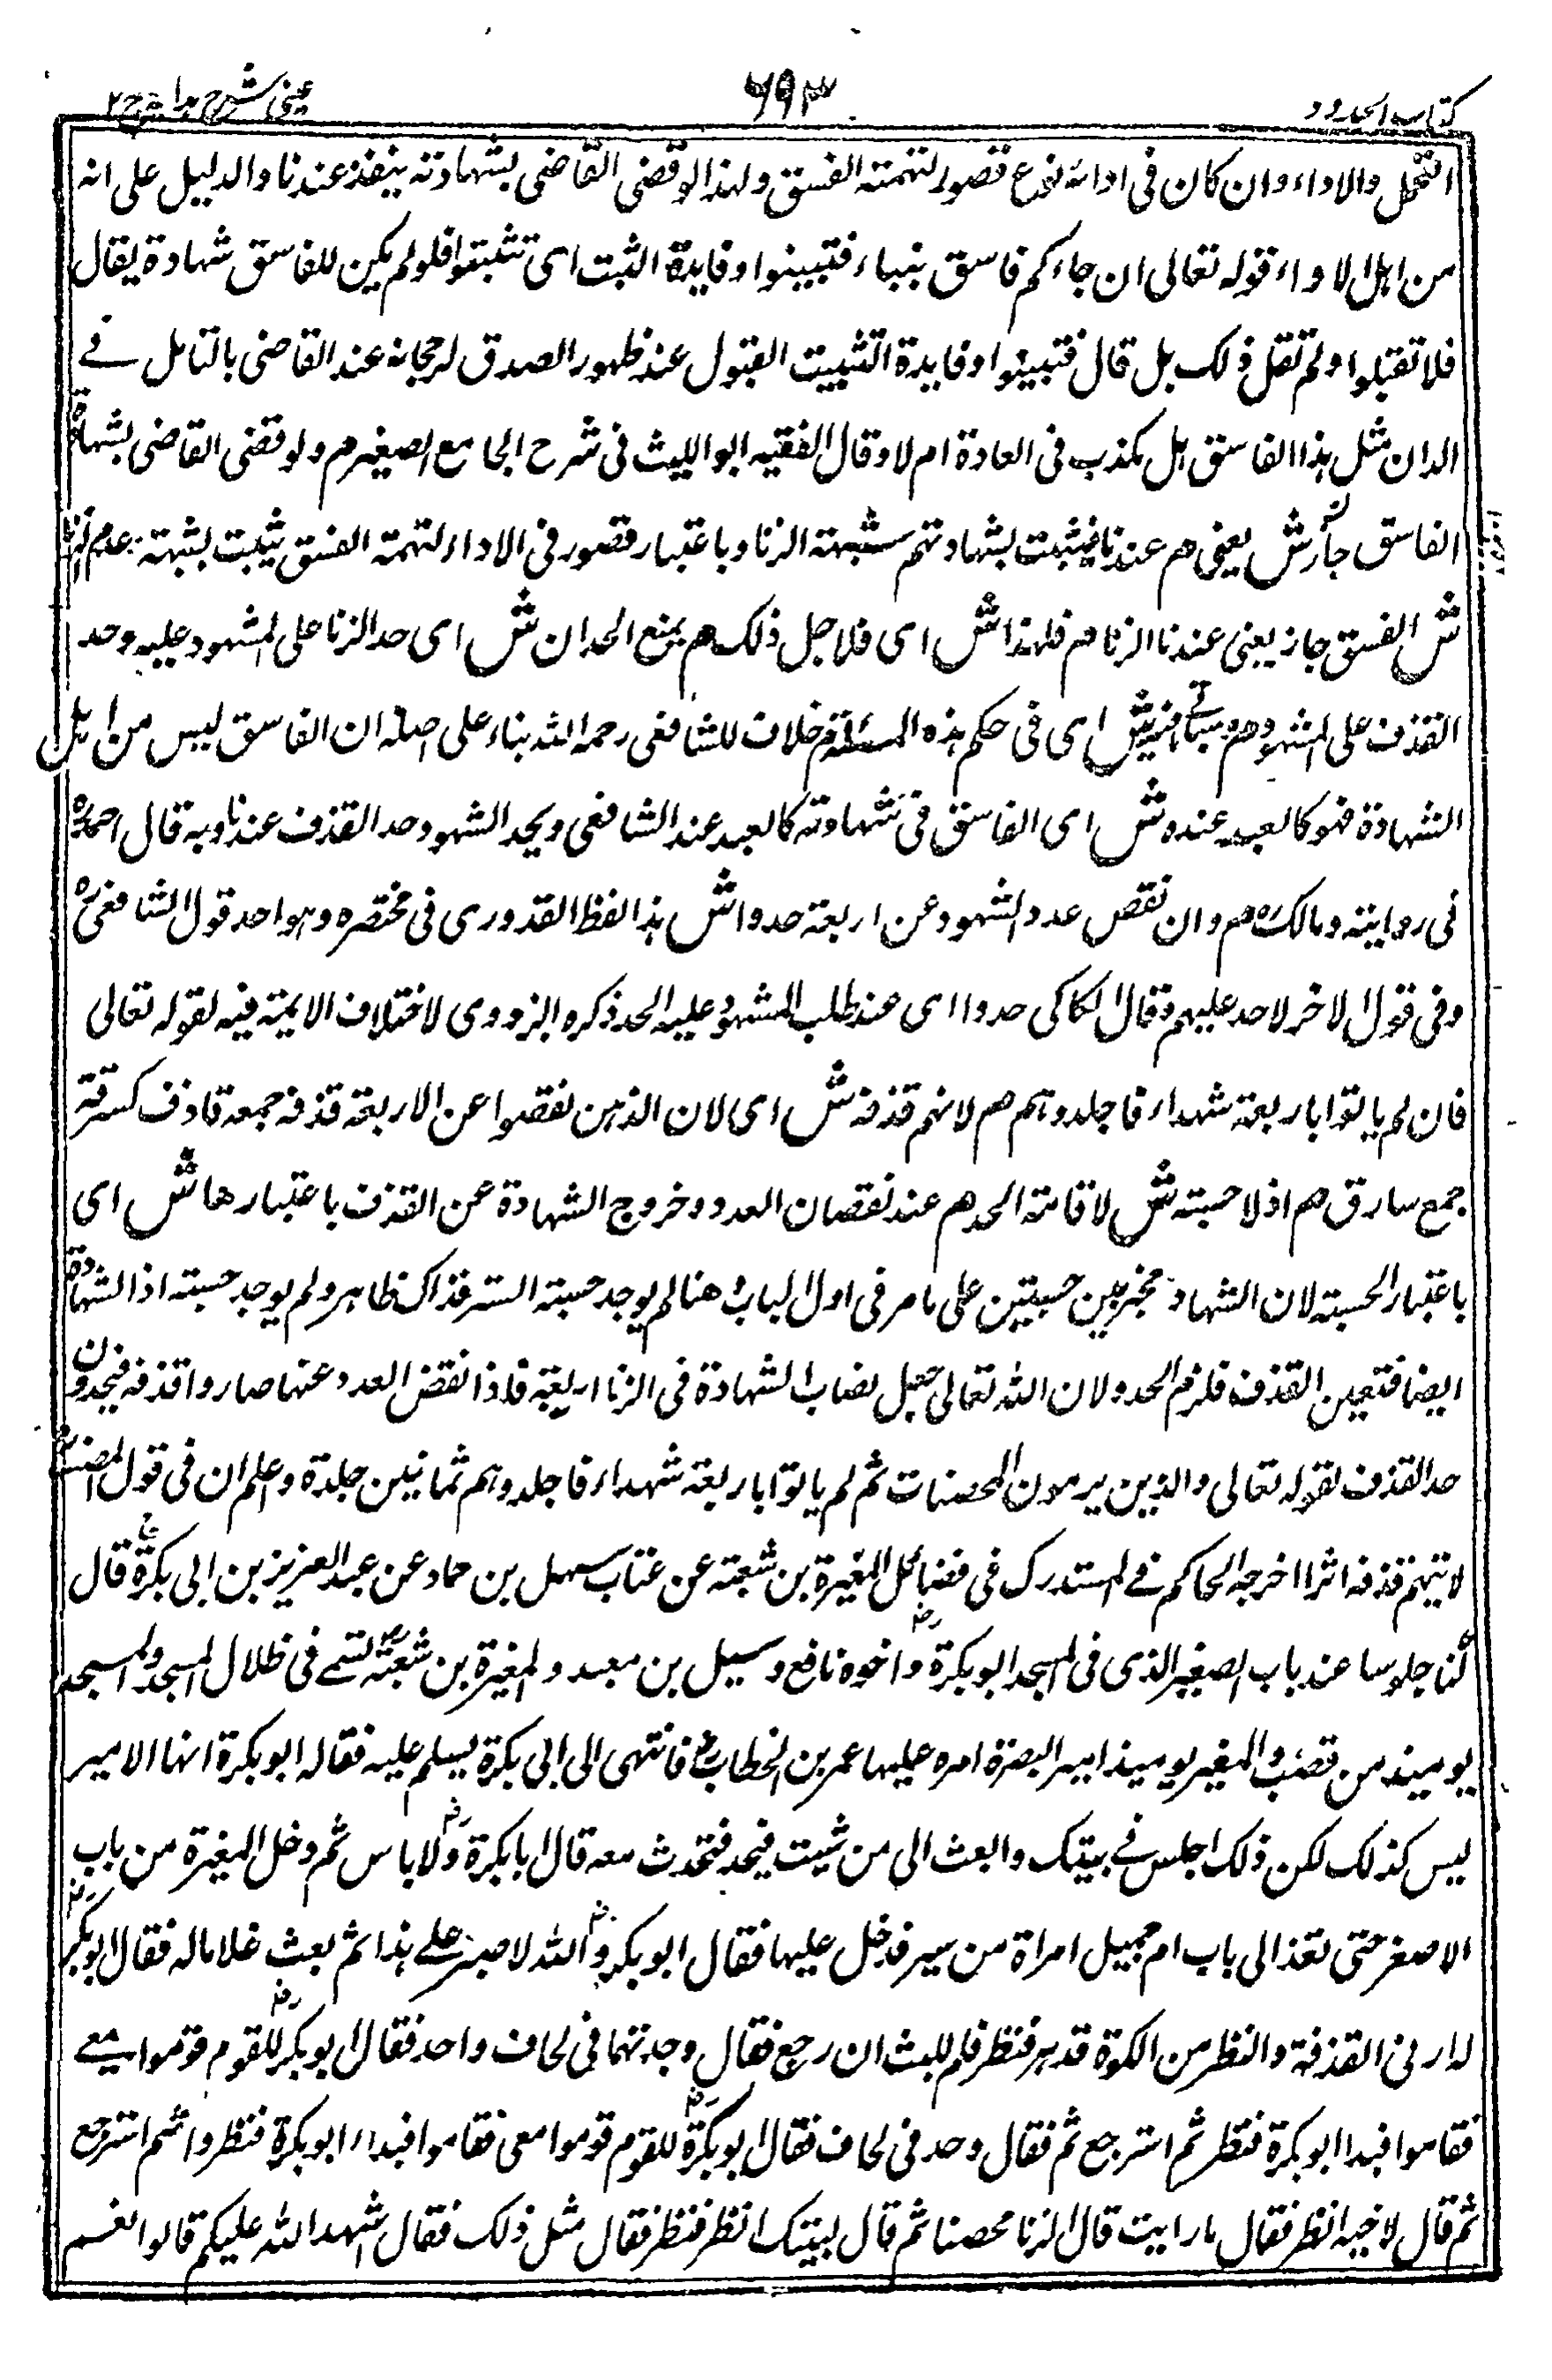 كتاب الحدود
٦٩٣
عينى شرح هدايه ج ٢
التحمل والاداء وان كان فى ادائه نوع قصور لتهمته الفسق ولهذا لو قضى القاضى بشهادته ينفذ عندنا والدليل على انه
من اهل الاداء قوله تعالى ان جاءكم فاسق بنباء فتبينوا وفايدة الثبت اى تثبتوا فلو لم يكن للفاسق شهادة يقال
فلا تقبلوا ولم تقل ذلك بل قال فتبينوا وفايدة التثبيت القبول عند ظهور الصدق لرجحانه عند القاضى بالتامل فے
الدان مثل هذا الفاسق اهل يكذب فى العادة ام لا وقال الفقيه ابو الليث فى شرح الجامع الصغير م ولو قضى القاضى بشهادة
الفاسق جاز ش يعنى م عندنا فيثبت بشهادتهم شبهته الزنا وباعتبار قصور فى الاداء لتهمته الفسق يثبت بشبهته عدم الزنا
ش الفسق جاز يعنى عندنا الزنا م فلهذا ش اى فلاجل ذلك م يمنع الحدان ش اى حد الزنا على المشهود عليه وحد
القذف على الشهود م وسياتى فيه ش اى فى حكم هذه المسئلة م خلاف للشافعى رحمه الله بناء على اصله ان الفاسق ليس من اهل
الشهادة فهو كالعبد عنده ش اى الفاسق فى شهادته كالعبد عند الشافعى ويحد الشهود حد القذف عندنا وبه قال احمدؒ
فى رواية ومالكؒ م وان نقص عدد الشهود عن اربعة حدوا ش هذا لفظ القدورى فى مختصره وهو احد قول الشافعىؒ
وفى قول الاخر لا حد عليهم وقال الكاكى حدوا اى عند طلب المشهود عليه الحد ذكره البزدوى لاختلاف الايمة فيه لقوله تعالى
فان لم ياتوا باربعة شهداء فاجلدوهم م لانهم قذفة ش اى لان الذين نقصوا عن الاربعة قذفه جمعه قاذف كسرقة
جمع سارق م اذ لا حسبته ش لاقامته الحد م عند نقصان العدد وخروج الشهادة عن القذف باعتبارها ش اى
باعتبار الحسبته لان الشهادة مخير بين حسبتين على ما مر فى اول الباب وهنا لم يوجد حسبته الستر فذاك ظاهر ولم يوجد حسبته اذا الشهادة
ايضا فتعين القذف فلزم الحد ولان الله تعالى جعل نصاب الشهادة فى الزنا اربعة فاذا نقض العدد عنها صاروا قذفه فيحدون
حد القذف لقوله تعالى والذين يرمون المحصنات ثم لم ياتوا باربعة شهداء فاجلدوهم ثمانين جلدة واعلم ان فى قول المصنفؒ
لانهم قذفه اثرا اخرجه الحاكم فے المستدرك فى فضائل المغيرة بن شعبته عن عتاب سهل بن حماد عن عبد العزيز بن ابى بكرةؓ قال
كنا جلوسا عند باب الصغير الذى فى المسجد ابو بكرةؓ واخوه نافع وسيل بن معبد والمغيرة بن شعبةؓ تمشے فى ظلال المسجد والمسجد
يوميذ من قصب والمغير يوميذ امير البصرة امره عليها عمر بن الخطابؓ فانتهى الى ابى بكرة يسلم عليه فقاله ابو بكرة انها الامير
ليس كذلك لكن ذلك اجلس فے بيتك والبعث الى من شيت فيحد فتحدث معه قال ابابكرةؓ ولا باس ثم دخل المغيرة من باب
الاصغر حتى تغذ الى باب ام جميل امراة من سير فدخل عليها فقال ابو بكرؓ والله لا صبر علے هذا ثم بعث غلاما له فقال ابو بكرؓ
لدار فى القذفة والنظر من الكوة قد هر فنظر فلم للبث ان رجع فقال وجدتهما فى لحاف واحد فقال ابو بكرؓ للقوم قوموا معے
فقاموا فبدا ابو بكرة فنظر ثم استرجع ثم فقال وحد فى لحاف فقال ابو بكرةؓ للقوم قوموا معى فقاموا فبداء ابو بكرة فنظر واثم استرجع
ثم قال لاخيه انظر فقال ما رايت قال الزنا محصنا ثم قال لبيتك انظر فنظر فقال مثل ذلك فقال اشهد الله عليكم قالوا نعم